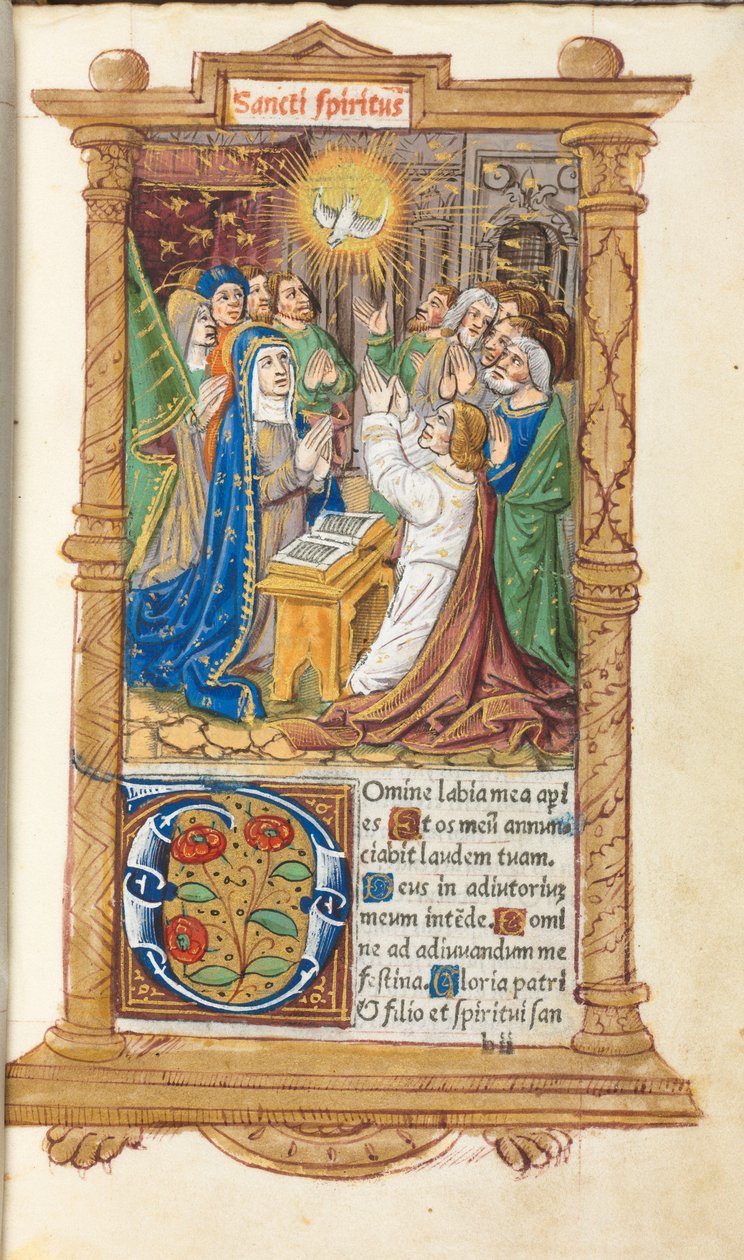 Sancti spiritus
Domine labia mea aperi
es Et os meū annun⸗
ciabit laudem tuam.
Deus in adiutoriuʒ
meum intēde. Domi
ne ad adiuuandum me
festina. Gloria patri
& filio et spiritui san
b ii